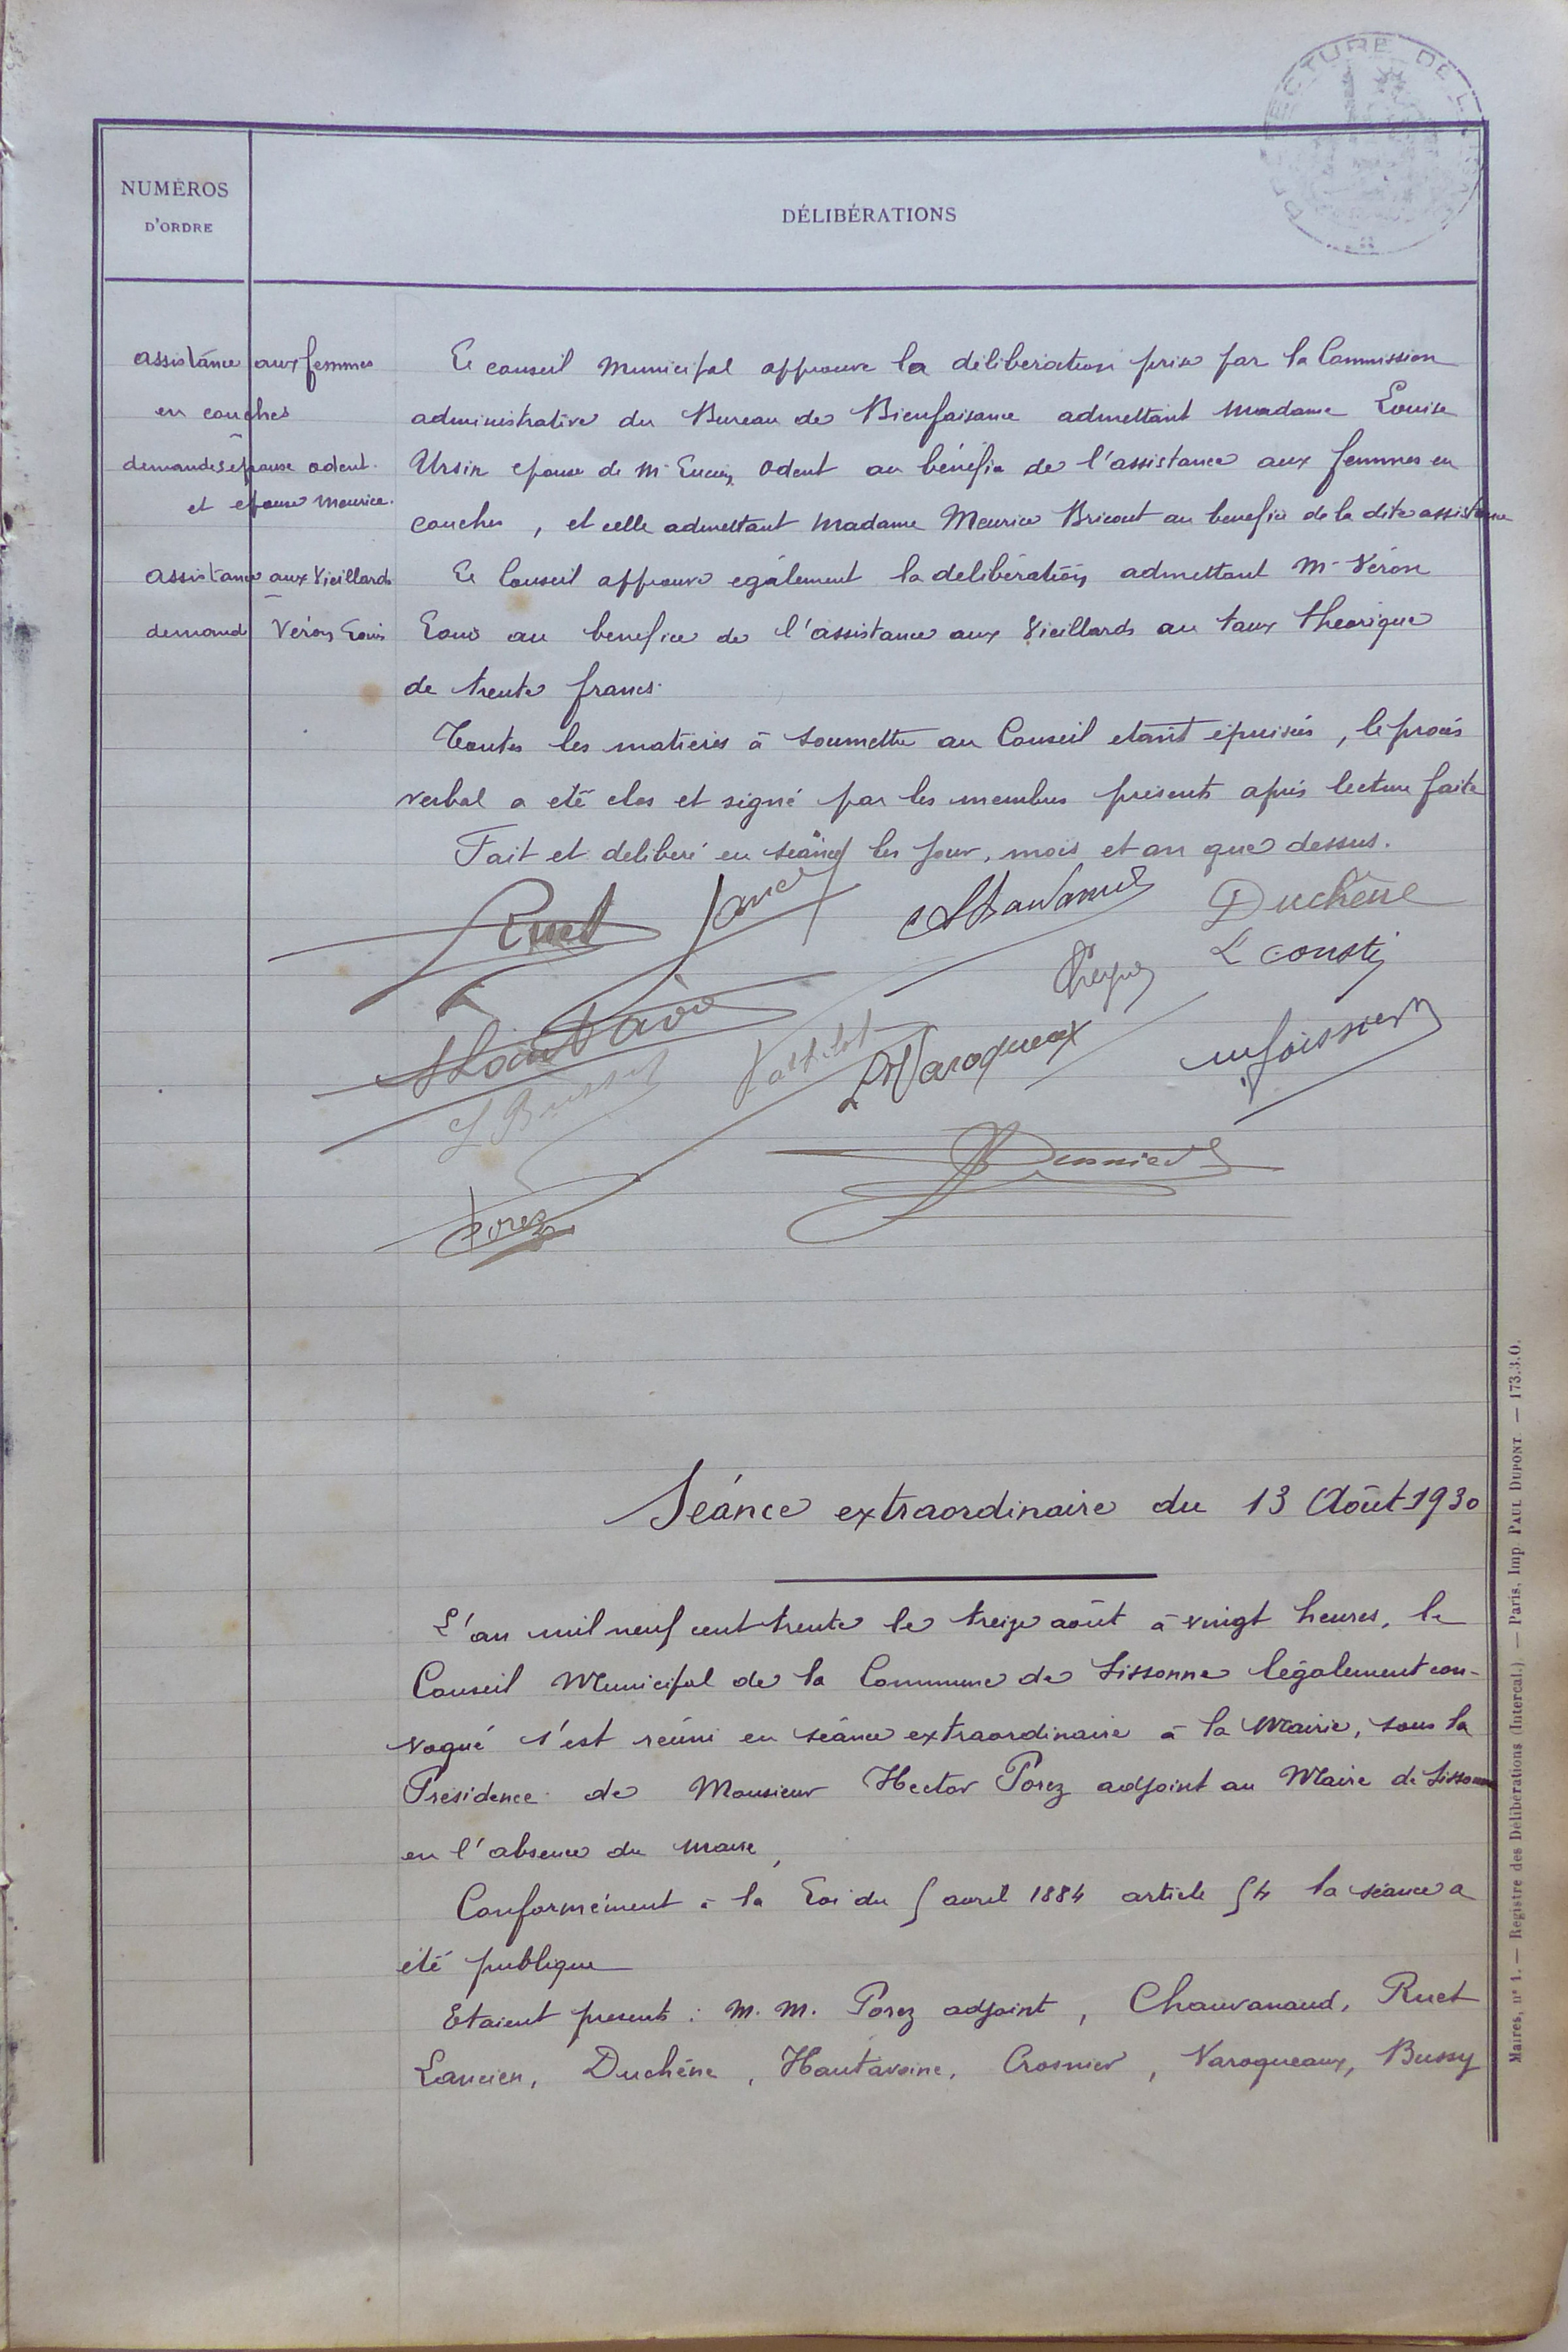 PRÉFECTURE DE L'AISNE
NUMÉROS
D'ORDRE
DÉLIBÉRATIONS
assistance aux femmes
en couches
demandes epouse odent.
et epouse Meurice.
Le conseil Municipal approuve la délibération prise par la Commission
administrative du Bureau de Bienfaisance admettant Madame Louise
Ursin epouse de Mr Lucien Odent au bénéfice de l'assistance aux femmes en
couches, et celle admettant Madame Meurice Bricout au benefice de la dite assistance
assistance aux Vieillards
demande Véron Louis
Le Conseil approuve également la deliberation admettant Mr Véron
Louis au benefice de l'assistance aux Vieillards au taux théorique
de trente francs.
Toutes les matières à soumettre au Conseil etant épuisées, le procès
verbal a eté clos et signé par les membres présents après lecture faite
Fait et deliberé en séance les jour, mois et an que dessus.
Ruet
Duchêne
Hautavoine
L Bussy
D Varoqueaux
Porez
Séance extraordinaire du 13 Août 1930
L'an mil neuf cent trente le treize août à vingt heures, le
Conseil Municipal de la Commune de Sissonne légalement con-
voqué s'est réuni en séance extraordinaire à la Mairie, sous la
Présidence de Monsieur Hector Porez adjoint au Maire de Sissonne
en l'absence du maire,
Conformément à la Loi du 5 avril 1884 article 54 la séance a
été publique
Etaient presents : M. M. Porez adjoint, Chauvanaud, Ruet
Lancien, Duchêne, Hautavoine, Crosnier, Varoqueaux, Bussy
Maires, n° 1. — Registre des Délibérations (Intercal.) — Paris, Imp PAUL DUPONT — 173.3.O.